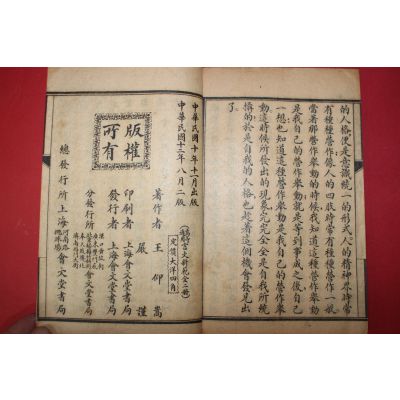 的人格便是意識統一的形式人的精神界時常
有種種營作像人的四肢時常有種種營作一般
當著那營作舉動的時候我知道這種營作舉動
是我自己的營作舉動就是等到事成之後自己
一想也知道這種營作舉動是我自己的營作舉
動這時候所發出的現象完完全全是自我所統
攝的於是自我的人格也趁著這個機會發見出
了
中華民國十年十一月出版
中華民國十二年八月二版
定價大洋四角
著作者 王仰嵩
嚴謹
印刷者 上海會文堂書局
發行者 上海會文堂書局
分發行所
會文堂書局
總發行所 上海河南路 會文堂書局
版權
所有